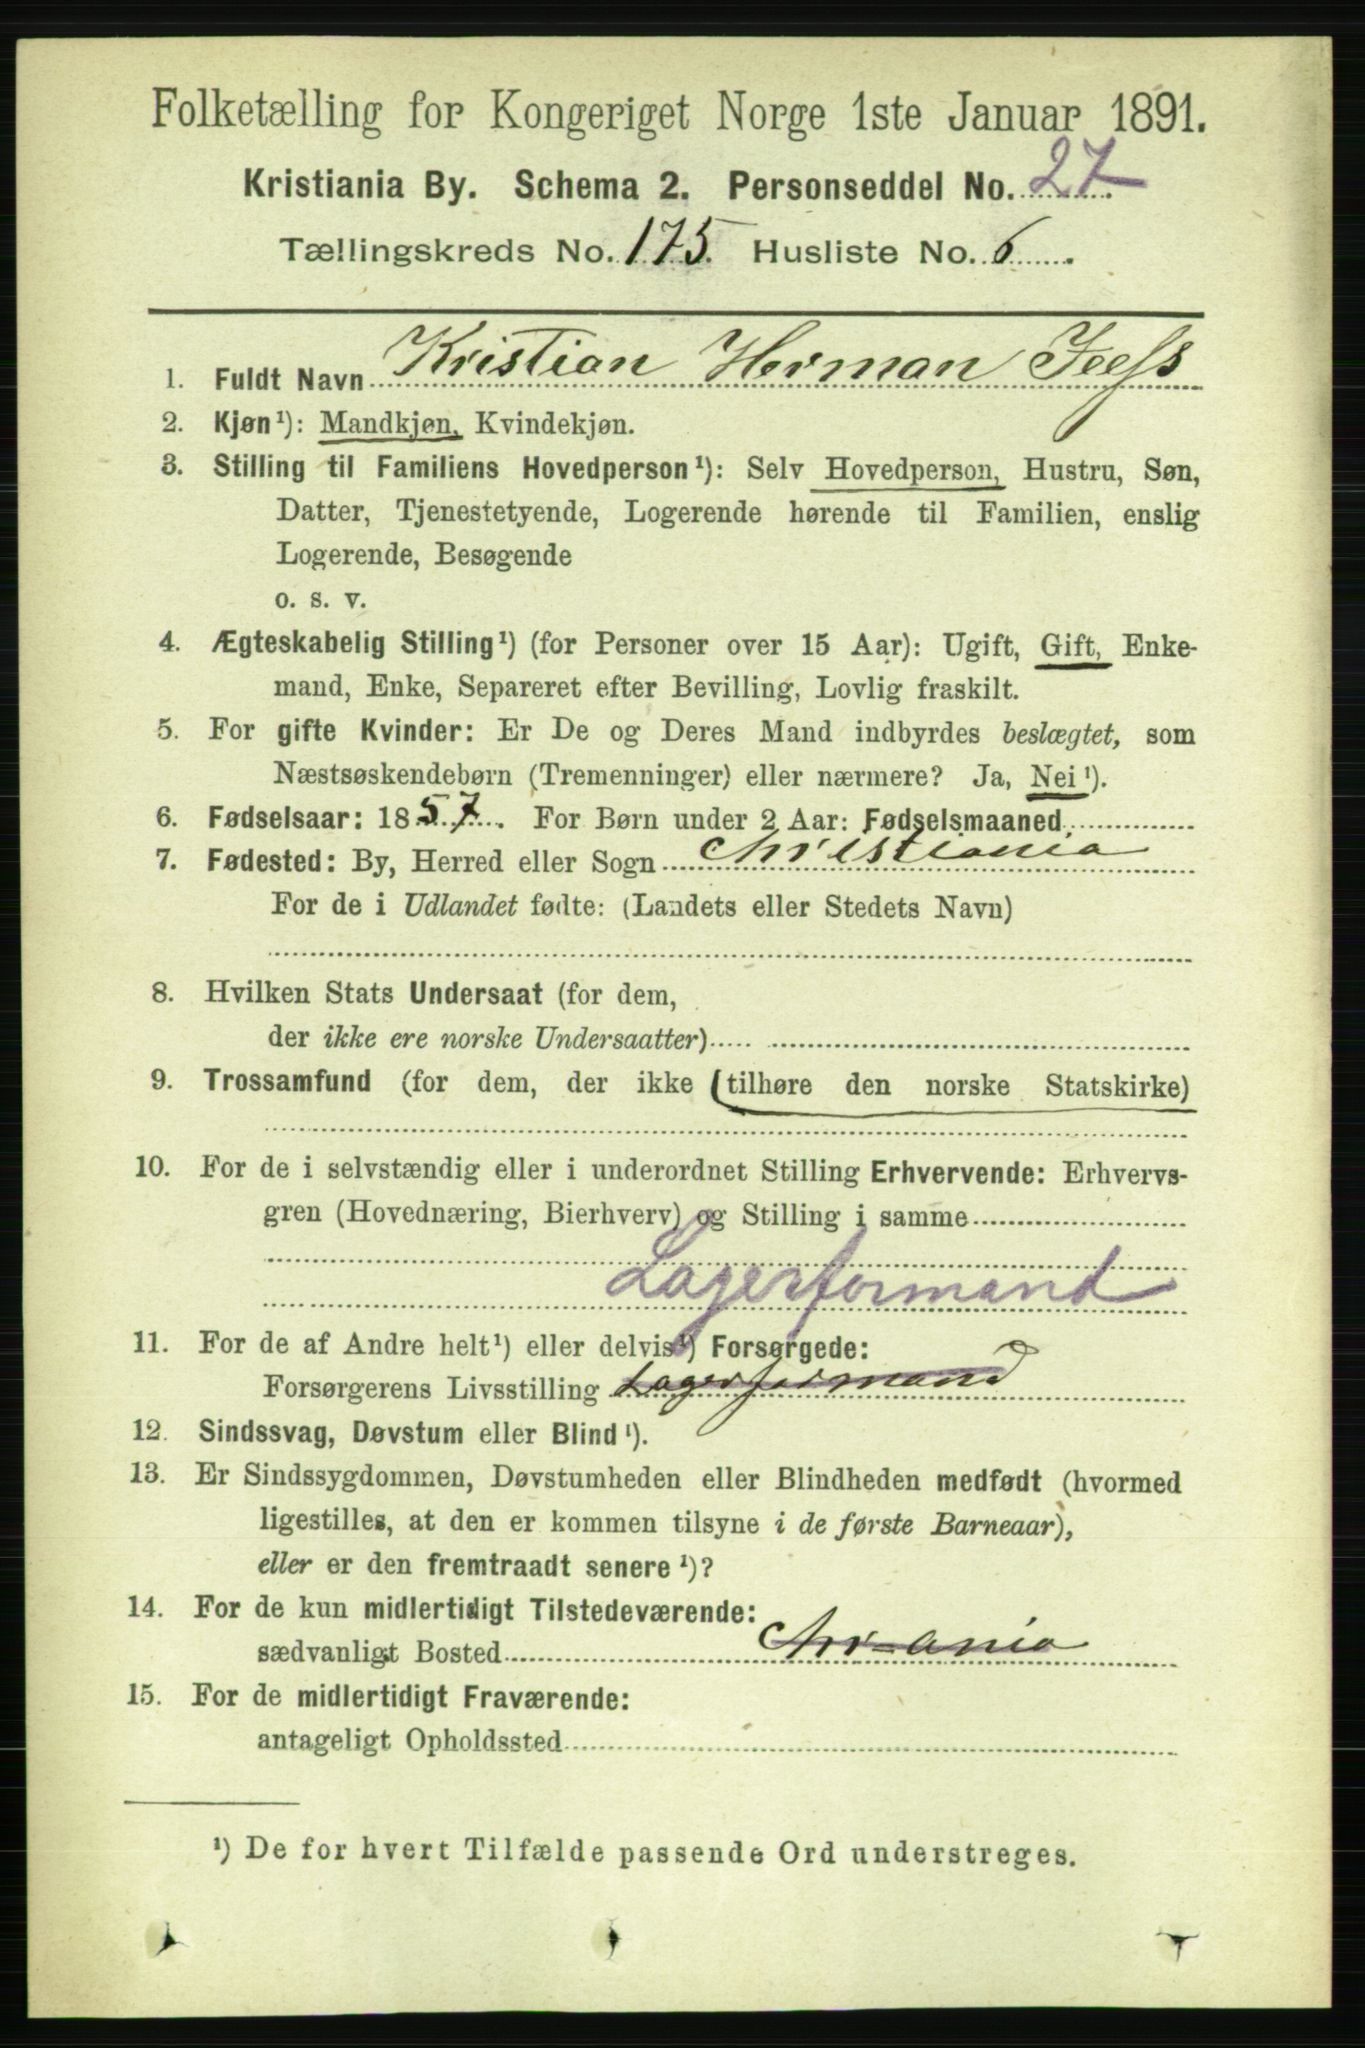 Folketælling for Kongeriget Norge 1ste Januar 1891.
Kristiania By. Schema 2. Personseddel No. 27
Tællingskreds No. 175. Husliste No. 6
1. Fuldt Navn Kristian Herman
2. Kjøn¹): Mandkjøn, Kvindekjøn.
3. Stilling til Familiens Hovedperson¹): Selv Hovedperson, Hustru, Søn,
Datter, Tjenestetyende, Logerende hørende til Familien, enslig
Logerende, Besøgende
o. s. v.
4. Ægteskabelig Stilling¹) (for Personer over 15 Aar): Ugift, Gift, Enke-
mand, Enke, Separeret efter Bevilling, Lovlig fraskilt.
5. For gifte Kvinder: Er De og Deres Mand indbyrdes beslægtet, som
Næstsøskendebørn (Tremenninger) eller nærmere? Ja, Nei¹).
6. Fødselsaar: 1857. For Børn under 2 Aar: Fødselsmaaned
7. Fødested: By, Herred eller Sogn Christiania
For de i Udlandet fødte: (Landets eller Stedets Navn)
8. Hvilken Stats Undersaat (for dem,
der ikke ere norske Undersaatter)
9. Trossamfund (for dem, der ikke (tilhøre den norske Statskirke)
10. For de i selvstændig eller i underordnet Stilling Erhvervende: Erhvervs-
gren (Hovednæring, Bierhverv) og Stilling i samme
Lagerformand
11. For de af Andre helt¹) eller delvis¹) Forsørgede:
Forsørgerens Livsstilling Lagerformand
12. Sindssvag, Døvstum eller Blind¹).
13. Er Sindssygdommen, Døvstumheden eller Blindheden medfødt (hvormed
ligestilles, at den er kommen tilsyne i de første Barneaar),
eller er den fremtraadt senere¹)?
14. For de kun midlertidigt Tilstedeværende:
sædvanligt Bosted Chr-ania
15. For de midlertidigt Fraværende:
antageligt Opholdssted
¹) De for hvert Tilfælde passende Ord understreges.